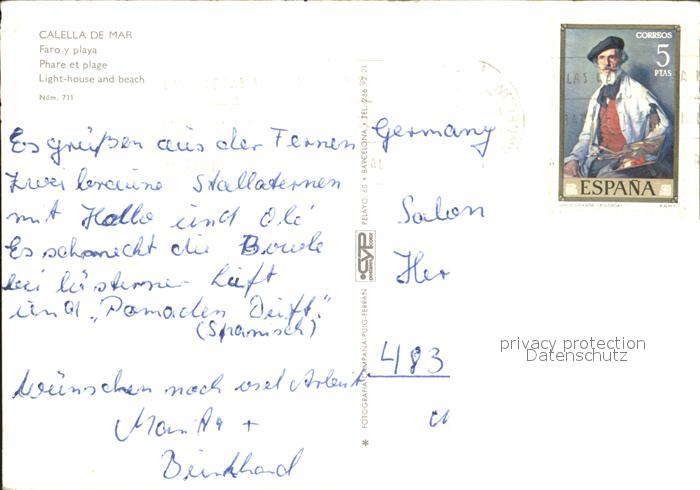 CALELLA DE MAR
Faro y playa
Phare et plage
Light-house and beach
Núm. 711
Es grüßen aus der Fernen
zwei braune Stallaternen
mit Hallo und Olé
Es schmeckt die Bowle
bei lüsterner Luft
und „Pomaden Duft."
(Spanisch)
Wünschen noch viel Arbeit
+
FOTOGRAFIA CAMPAÑA-PUIG-FERRAN
CYP
PELAYO, 60 • BARCELONA • TEL.
CORREOS
5
PTAS
ESPAÑA
Germany
Salon
Her
483
privacy protection
Datenschutz